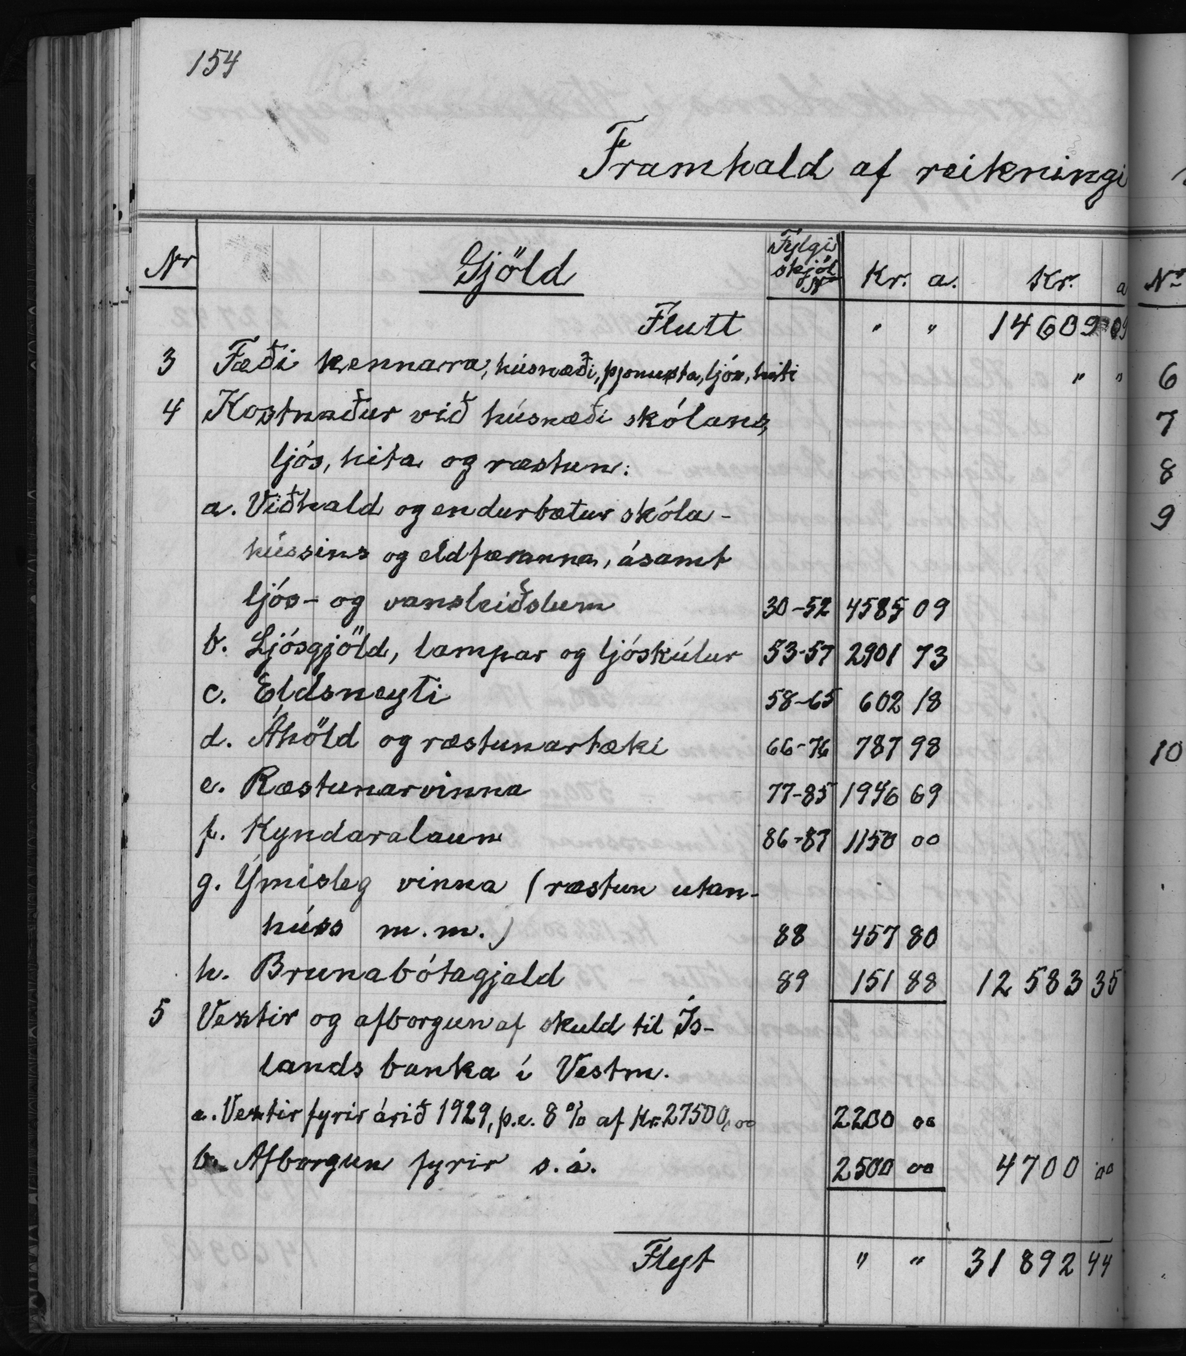 154
Framhald af reikningi
Nr Gjöld Fylgiskjöl Nr Kr. a. Kr. a
Flutt " " 14609 09
3 Fæði kennara, húsnæði, þjónusta, ljós, hiti " "
4 Kostnaður við húsnæði skólans,
ljós, hita og ræstun:
a. Viðhald og endurbætur skóla-
hússins og eldfæranna, ásamt
ljós- og vansleiðslum 30-52 4585 09
b. Ljósgjöld, lampar og ljóskúlur 53-57 2901 73
c. Eldsneyti 58-65 602 18
d. Áhöld og ræstunartæki 66-76 787 98
e. Ræstunarvinna 77-85 1946 69
f. Kyndaralaun 86-87 1150 00
g. Ýmisleg vinna (ræstun utan-
húss m.m.) 88 457 80
h. Brunabótagjald 89 151 88 12583 35
5 Vextir og afborgun af skuld til Ís-
lands banka í Vestm.
a. Vextir fyrir árið 1929, þ.e. 8% af Kr. 27500,00 2200 00
b. Afborgun fyrir s.á. 2500 00 4700 00
Flyt " " 31892 44
No
6
7
8
9
10